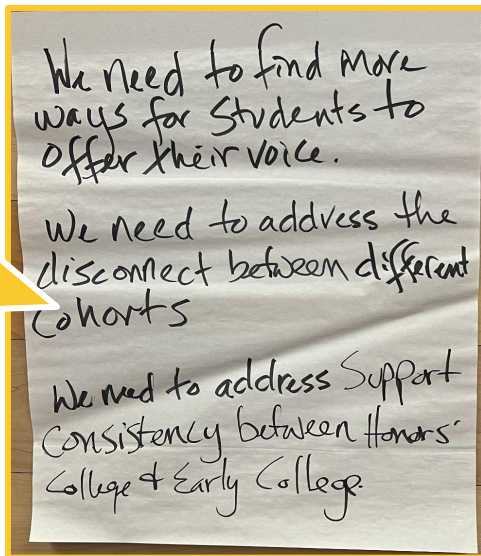 We need to find more
ways for Students to
offer their voice.
We need to address the
disconnect between different
Cohorts
We need to address Support
Consistency between Honors'
College & Early College.